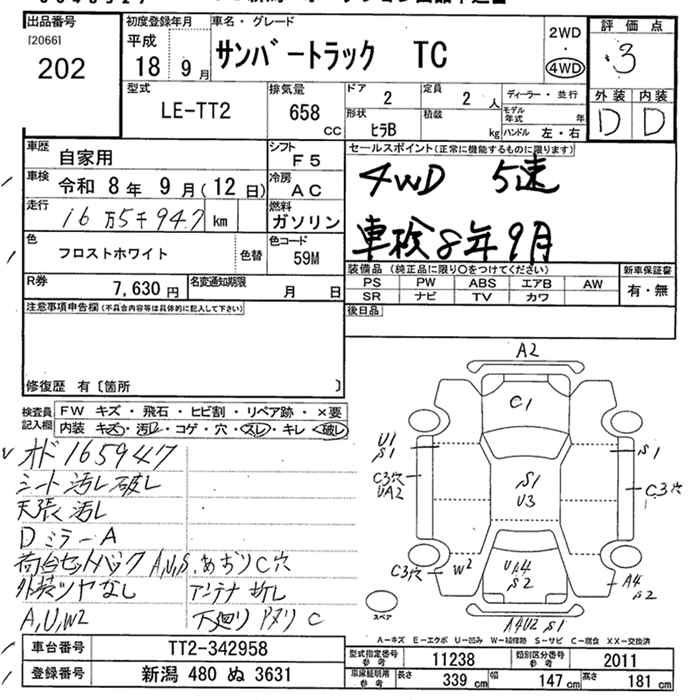 出品番号
[2066]
202
初度登録年月
平成
18 9月
車名・グレード
サンバートラック TC
2WD
・
4WD
評価点
3
外装 内装
D D
型式
LE-TT2
排気量
658
CC
ドア
2
定員
2 人
ディーラー・並行
モデル年式 年
形状
ヒラB
積載
kg
ハンドル 左・右
車歴
自家用
シフト
F5
セールスポイント(正常に機能するものに限ります)
4WD 5速
車検8年9月
車検
令和 8年 9月(12日)
冷房
AC
走行
16万5千947 km
燃料
ガソリン
色
フロストホワイト
色替
色コード
59M
装備品(純正品に限り〇をつけてください)
新車保証書
PS PW ABS エアB AW
有・無
SR ナビ TV カワ
R券
7,630円
名変通知期限
月 日
後日品
注意事項申告欄(不具合内容等は具体的に記入して下さい)
修復歴 有〔箇所 〕
検査員記入欄
FW キズ・飛石・ヒビ割・リペア跡・×要
内装 キズ・汚レ・コゲ・穴・スレ・キレ・破レ
オド165947
シート汚レ破レ
天張汚レ
Dミラー A
荷台セットバック A,U,S, あおりC穴
外装ツヤなし アンテナ折レ
A,U,W2 下廻りサビリ C
A2
C1
U1
S1
S1
C3穴
UA2
C3穴
S1
U3
C3穴
W2
UA4
S2
A4
S2
スペア
A4U2 S1
A-キズ E-エクボ U-凹み W-補修跡 S-サビ C-腐食 XX-交換済
車台番号
TT2-342958
登録番号
新潟 480 ぬ 3631
型式指定番号
参考
11238
類別区分番号
参考
2011
車庫証明用
参考
長さ
339 cm
幅
147 cm
高さ
181 cm